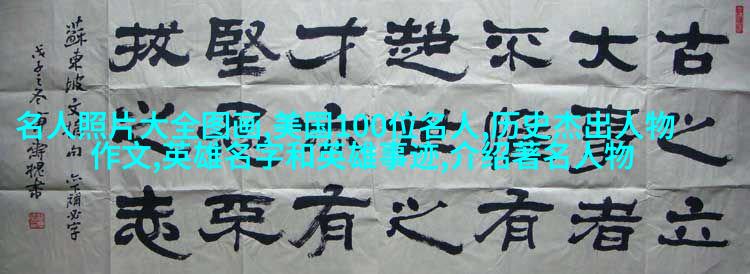 古之立
大事者
不惟有
超世之
才亦有
堅忍不
拔之志
蘇東坡文句
戊子之冬
名人照片大全图画,美国100位名人,历史杰出人物
作文,英雄名字和英雄事迹,介绍著名人物